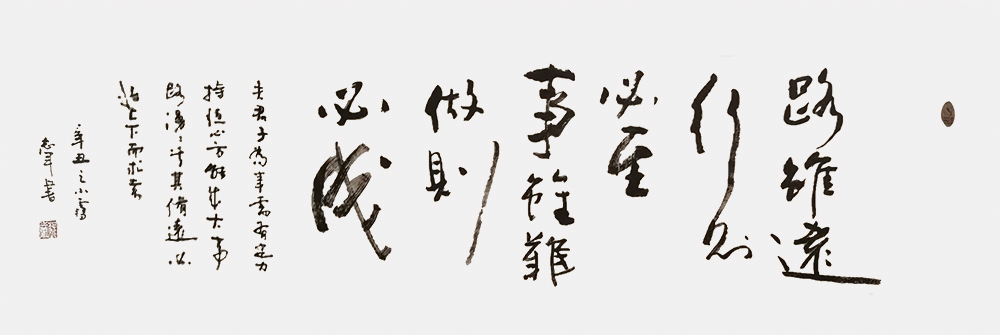 路雖遠
行則
必至
事雖難
做則
必成
夫君子為事需有定力
持恆心方能成大事
路漫々兮其脩遠必
將上下而求索
辛丑之小雪
書